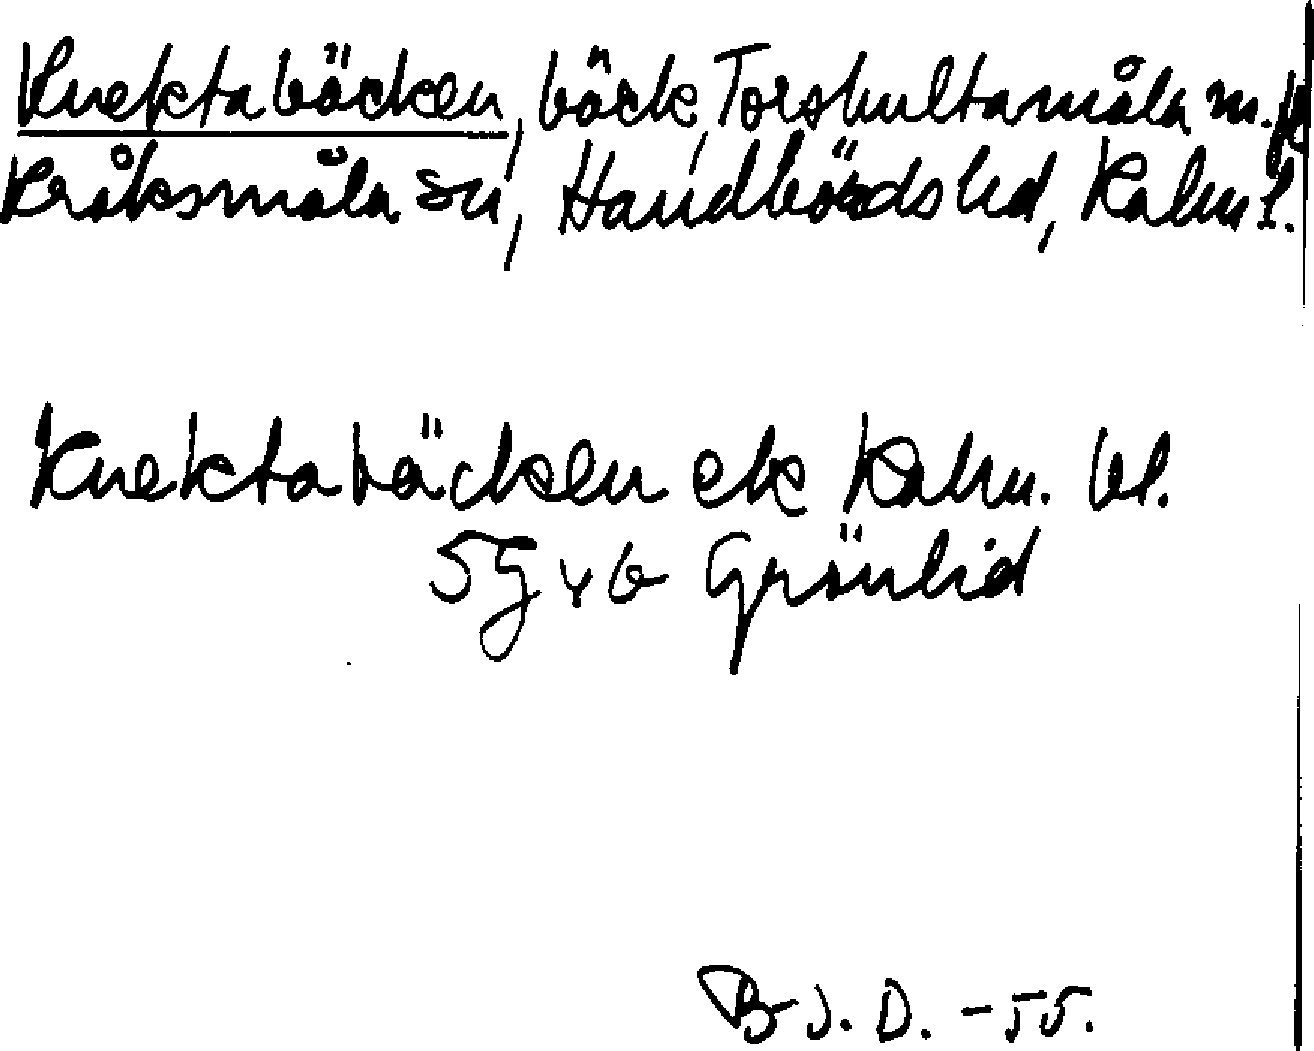 Knektabäcken, bäck, Torshultamåla m.fl
Kråksmåla sn, Handbörds hd, Kalm l.
Knektabäcken ek Kalm. bl.
5g v b Grönlid
B J. D. -55.